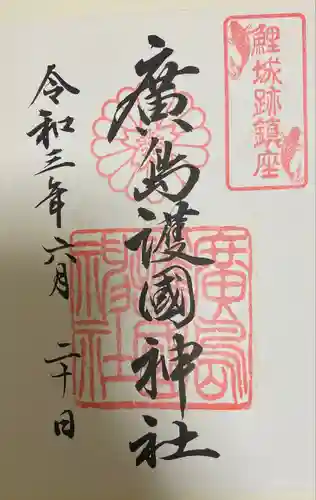 鯉城跡鎮座
廣島護國神社
令和三年六月二十日
廣島護國神社